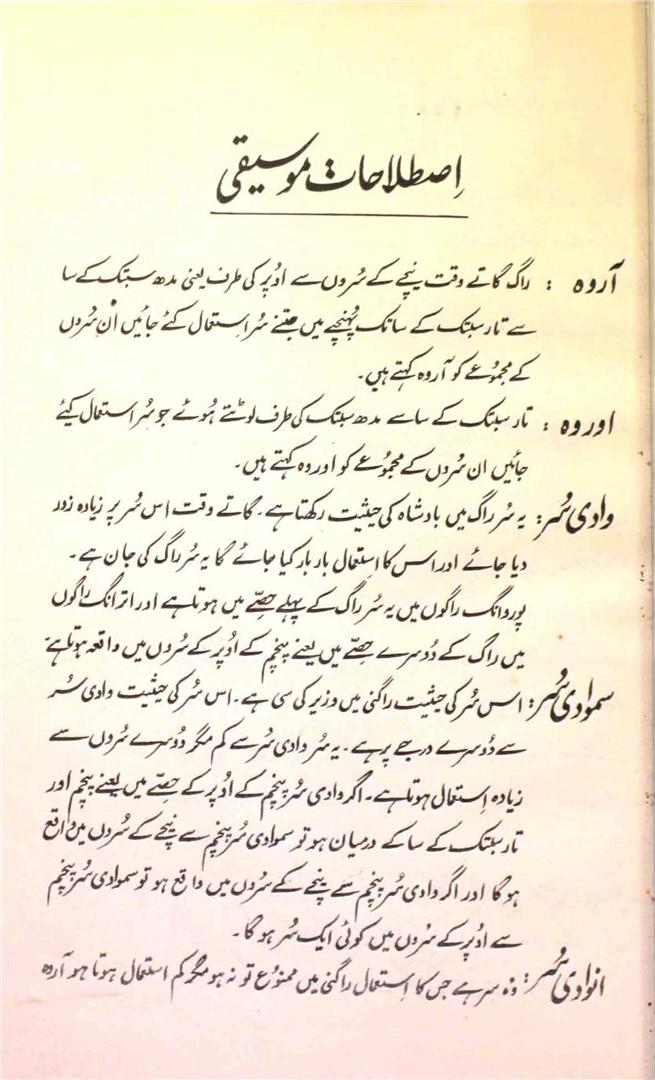 اِصطلاحات موسیقی
آروہ : راگ گاتے وقت نیچے کے سُروں سے اُوپر کی طرف یعنی مدھ سبتک کے سا
سے تار سبتک کے سا تک پہُنچنے میں جتنے سُر اِستعمال کئے جائیں اُن سُروں
کے مجموُعے کو آروہ کہتے ہیں۔
اوروہ : تار سبتک کے سا سے مدھ سبتک کی طرف لوٹتے ہُوئے جو سُر استعمال کیئے
جائیں ان سُروں کے مجموُعے کو اوروہ کہتے ہیں۔
وادی سُر: یہ سُر راگ میں بادشاہ کی حیثیت رکھتا ہے۔ گاتے وقت اس سُر پر زیادہ زور
دیا جائے اور اس کا اِستعمال بار بار کیا جائے گا یہ سُر راگ کی جان ہے۔
پوروانگ راگوں میں یہ سُر راگ کے پہلے حِصّے میں ہوتا ہے اور اترانگ راگوں
میں راگ کے دُوسرے حِصّے میں یعنے پنچم کے اُوپر کے سُروں میں واقعہ ہوتا ہے
سموادی سُر: اس سُر کی حیثیت راگنی میں وزیر کی سی ہے۔ اس سُر کی حیثیت وادی سُر
سے دُوسرے درجے پر ہے۔ یہ سُر وادی سُر سے کم مگر دُوسرے سُروں سے
زیادہ اِستعمال ہوتا ہے۔ اگر وادی سُر پنچم کے اُوپر کے حِصّے میں یعنے پنچم اور
تار سبتک کے سا کے درمیان ہو تو سموادی سُر پنچم سے نیچے کے سُروں میں واقع
ہوگا اور اگر وادی سُر پنچم سے نیچے کے سُروں میں واقع ہو تو سموادی سُر پنچم
سے اُوپر کے سُروں میں کوئی ایک سُر ہوگا۔
انوادی سُر: وہ سر ہے جس کا اِستعمال راگنی میں ممنوُع تو نہ ہو مگر کم استعمال ہوتا ہو آروہ